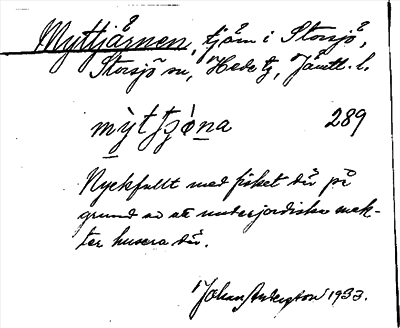 Myttjärnen, tjärn i Storsjö,
Storsjö sn, Hede tg, Jämtl. l.
mỳt tʒò̱na 289
Nyckfullt med fisket där på
grund av att underjordiska mak-
ter husera där.
Johan Anderzton 1933.